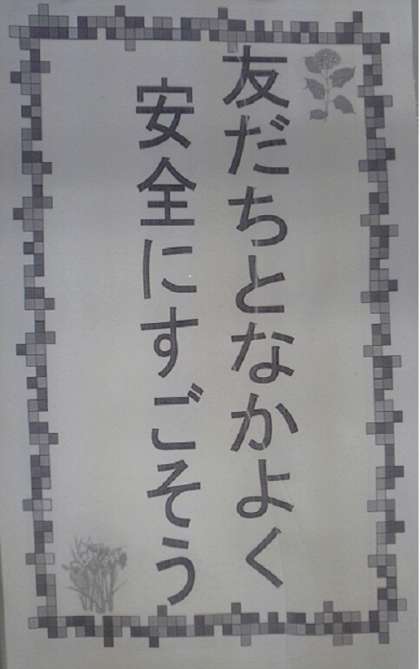 友だちとなかよく
安全にすごそう